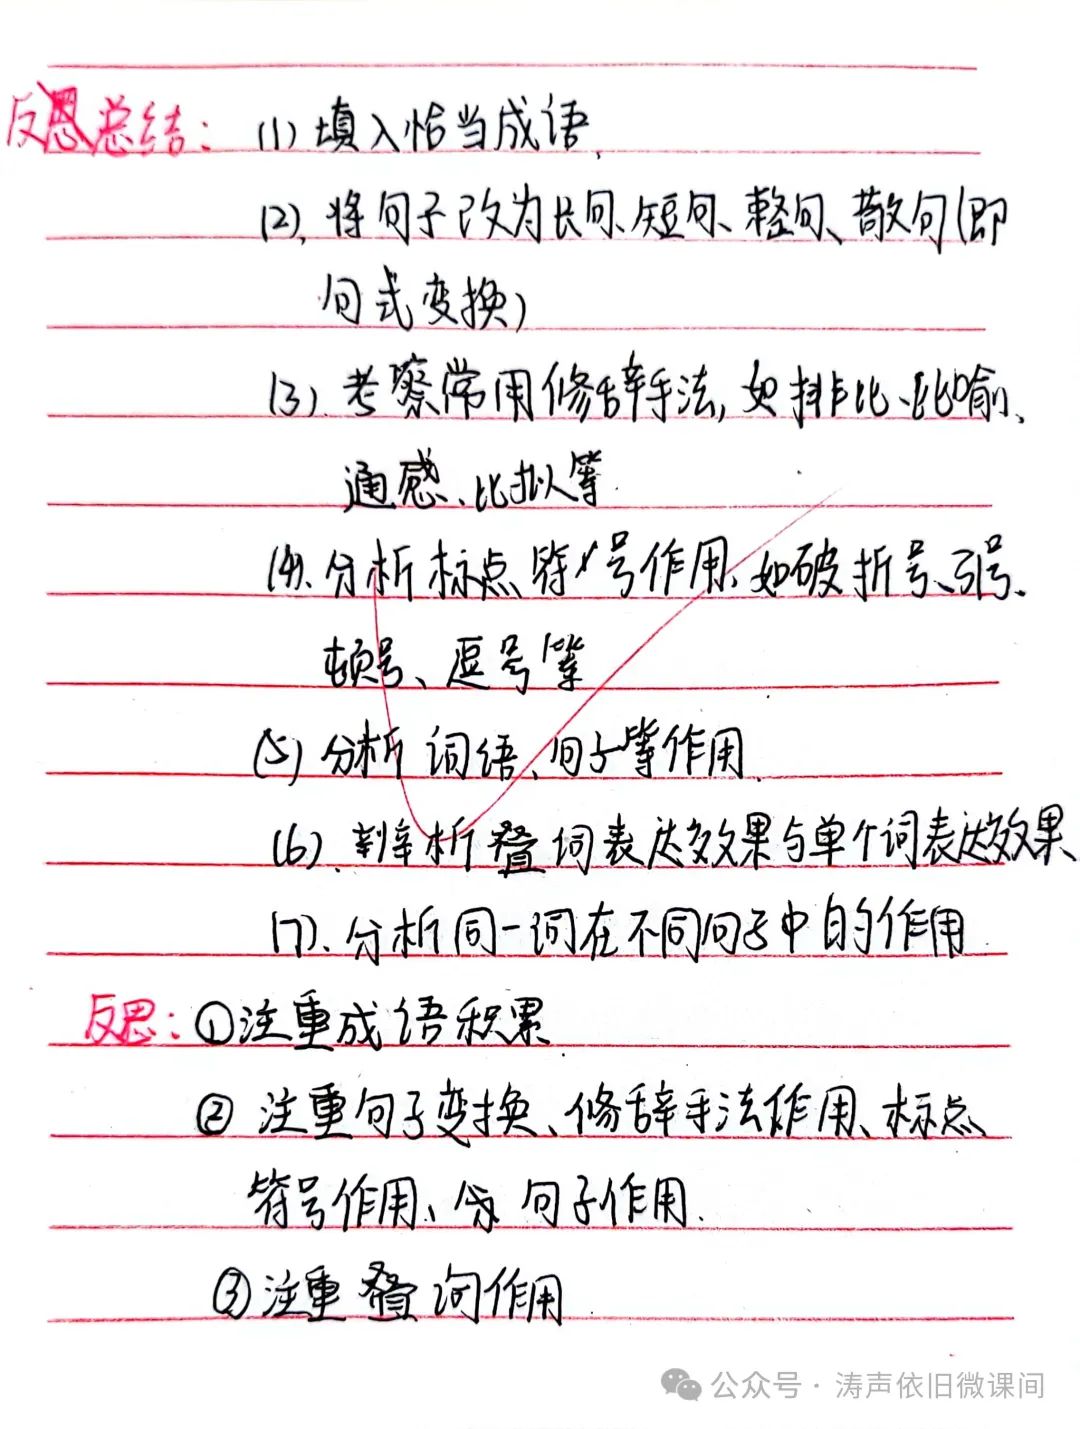 反思总结：(1)填入恰当成语、
(2)、将句子改为长句、短句、整句、散句(即
句式变换)
(3)、考察常用修辞手法,如排比、比喻、
通感、比拟等.
(4)、分析标点符号作用、如破折号、引号、
顿号、逗号等
(5)分析词语、句子等作用.
(6)、辨析叠词表达效果与单个词表达效果
(7)、分析同一词在不同句子中的作用
反思：①注重成语积累
②注重句子变换、修辞手法作用、标点
符号作用、句子作用.
③注重叠词作用
公众号·涛声依旧微课间